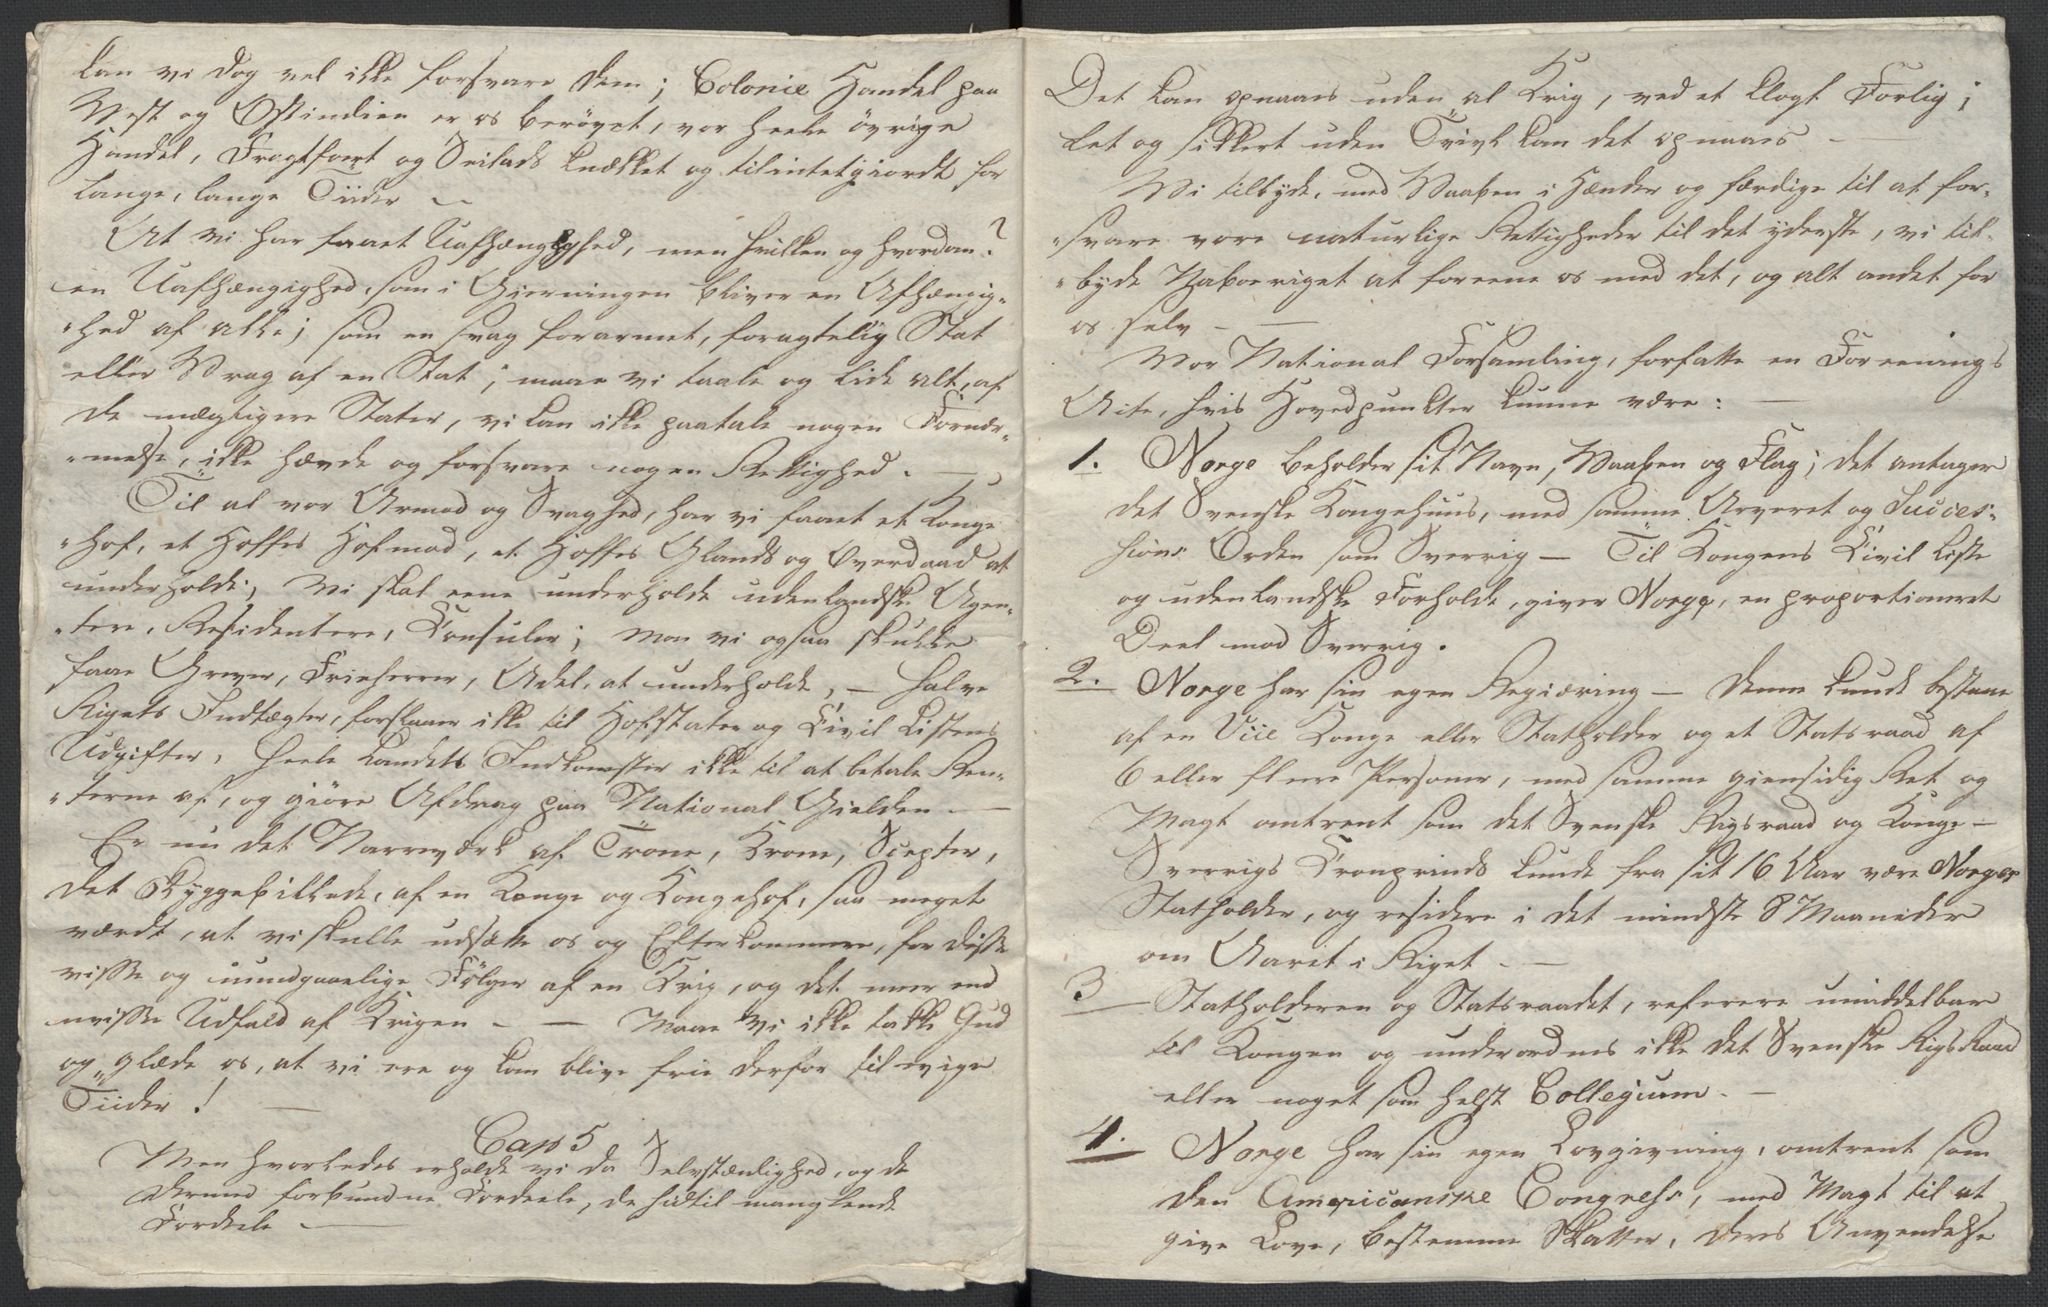 kan vi dog vel ikke forsvare dem; Colonie Handel paa
Vest og Ostindien er os berövet, vor heele övrige
Handel, Fragtfart og Seilads knækket og tilintetgiordt for
lange, lange Tiider —
At vi har faaet Uafhængighed, men hvilken og hvordan?
en Uafhængighed, som i Gierningen bliver en Afhængig-
"hed af alle; som en svag forarmet, foragtelig Stat
eller Vrag af en Stat; maae vi taale og lide alt, af
de mægtigere Stater, vi kan ikke paatale nogen Fornær-
"melse, ikke hævde og forsvare nogen Rettighed. —
Til al vor Armod og Svaghed, har vi faaet et Konge
"hof, et Hoffes Hofmod, et Hoffes Glands og Overdaad at
underholde; Vi skal eene underholde udenlandske Agen-
"tere, Residentere, Konsuler; Mon vi ogsaa skulle
faae Grever, Frieherrer, Adel, at underholde, — halve
Rigets Indtægter, forslaaer ikke til Hofstater og Civil Listens
Udgifter, heele Landets Indkomster ikke til at betale Ren-
"terne af, og giöre Afdrag paa National Gielden. —
Er nu det Narreværk af Trone, Krone, Scepter,
det Skyggebillede, af en Konge og Kongehof, saa meget
værdt, at vi skulle udsætte os og Efterkommere, for disse
visse og uundgaaelige Fölger af en Krig, og det meer end
uvisse Udfald af Krigen. — Maae vi ikke takke Gud
og glæde os, at vi ere og kan blive frie derfor til evige
Tiider! —
Cap 5
Men hvorledes erholde vi da Selvstændighed, og de
dermed forbundne Fordeele, de hidtil manglende
Fordeele —
Det kan opnaaes uden al Krig, ved et klogt Forlig;
let og sikkert uden Tvivl kan det opnaaes —
Vi tilbyde, med Vaaben i Hænder og færdige til at for-
"svare vore naturlige Rettigheder til det yderste, vi til-
"byde Naboeriget at foreene os med det, og alt andet for
os selv —
Vor National Forsamling, forfatte en Foreenings
Acte, hvis Hovedpunkter kunne være: —
1. Norge beholder sit Navn, Vaaben og Flag; det antager
det Svenske Kongehuus, med samme Arveret og Succes-
sions Orden som Sverrig — Til Kongens Civil Liste
og udenlandske Forholde, giver Norge, en proportioneret
Deel mod Sverrig.
2. Norge har sin egen Regiæring — denne kunde bestaae
af en Vice Konge eller Statholder og et Statsraad af
6 eller flere Personer, med samme giensidig Ret og
Magt omtrent som det Svenske Rigsraad og Konge —
Sverrigs Kronprinds kunde fra sit 16 Aar være Norges
Statholder, og residere i det mindste 8 Maaneder
om Aaret i Riget. —
3 Statholderen og Statsraadet, referere umiddelbar
til Kongen og underordnes ikke det Svenske Rigs Raad
eller noget som helst Collegium. —
4. Norge har sin egen Lovgivning, omtrent som
den Americanske Congress, med Magt til at
give Love, bestemme Skatter, deres Anvendelse